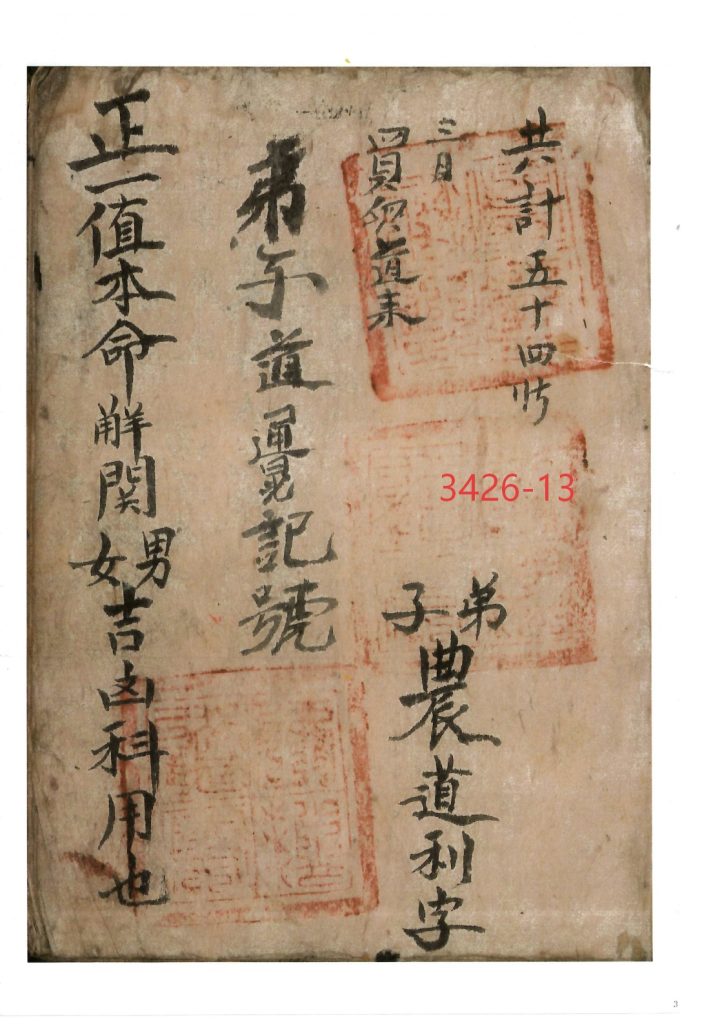 共計五十四
三日
買 道来
弟子農道利字
弟子道運晃記號
正一值本命解関男女吉凶科用也
3426-13
3